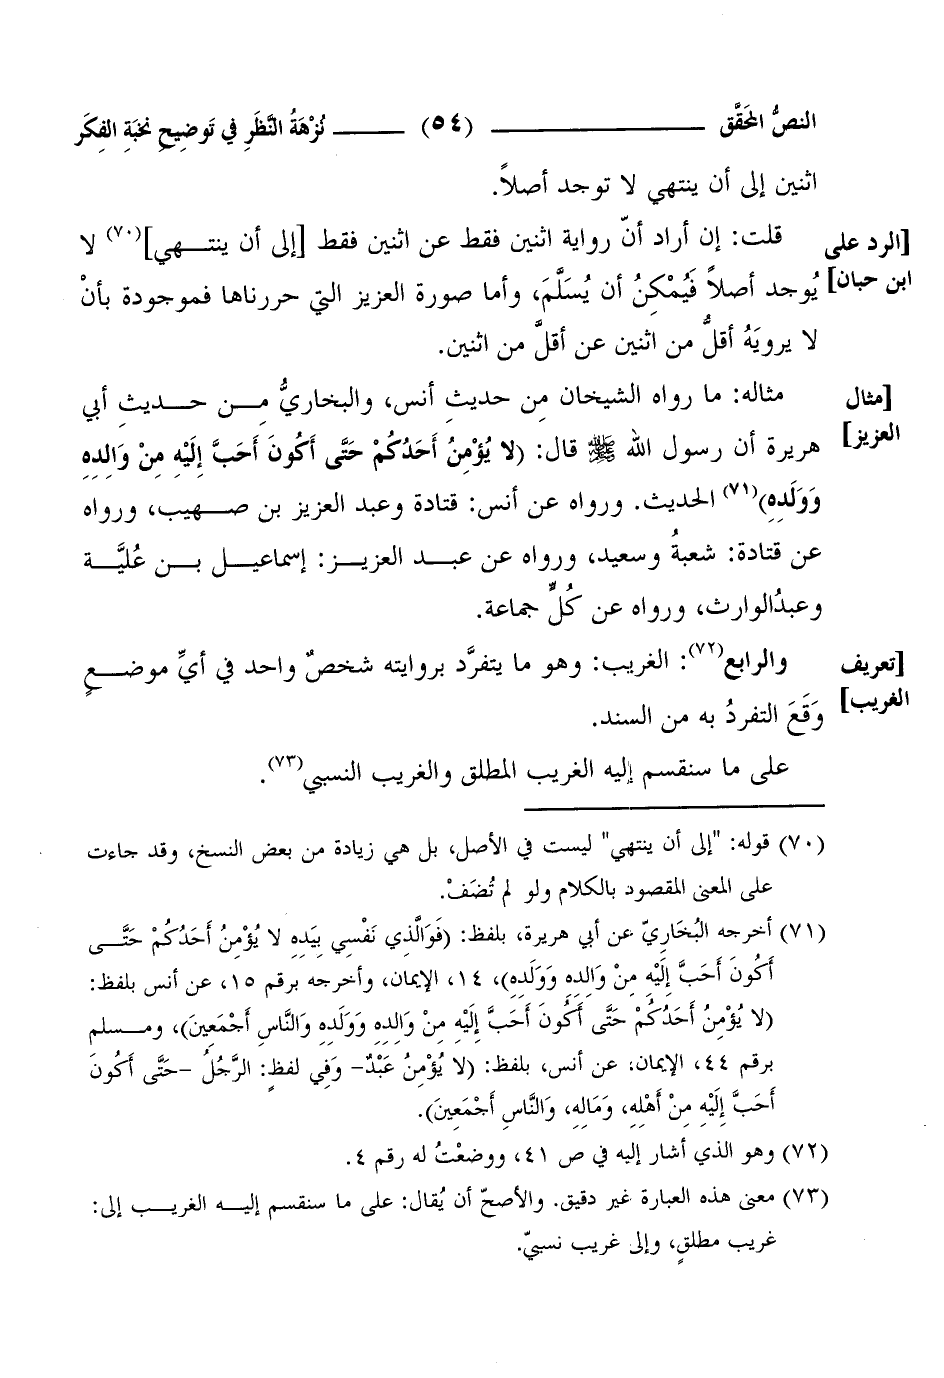 النصُّ المحَقَّق ــــــــــ (٥٤) ــــــــــ نُزْهَةُ النَّظَرِ في تَوضِيحِ نُخبَةِ الفِكَر
اثنين إلى أن ينتهي لا توجد أصلاً.
[الرد على ابن حبان]
قلت: إن أراد أنّ رواية اثنين فقط عن اثنين فقط [إلى أن ينتهي](٧٠) لا
يُوجد أصلاً فَيُمْكِنُ أن يُسَلَّمَ، وأما صورة العزيز التي حررناها فموجودة بأنْ
لا يرويَهُ أقلُّ من اثنين عن أقلَّ من اثنين.
[مثال العزيز]
مثاله: ما رواه الشيخان مِن حديثِ أنس، والبخاريُّ مِن حديثِ أبي
هريرة أن رسول الله ﷺ قال: (لا يُؤْمِنُ أَحَدُكُمْ حَتَّى أَكُونَ أَحَبَّ إِلَيْهِ مِنْ وَالِدِهِ
وَوَلَدِهِ)(٧١) الحديث. ورواه عن أنس: قتادة وعبد العزيز بن صهيب، ورواه
عن قتادة: شعبةُ وسعيد، ورواه عن عبد العزيز: إسماعيل بن عُلَيَّة
وعبدُالوارث، ورواه عن كُلٍّ جماعة.
[تعريف الغريب]
والرابع(٧٢): الغريب: وهو ما يتفرَّد بروايته شخصٌ واحد في أيِّ موضعٍ
وَقَعَ التفردُ به من السند.
على ما سنقسم إليه الغريب المطلق والغريب النسبي(٧٣).
(٧٠) قوله: "إلى أن ينتهي" ليست في الأصل، بل هي زيادة من بعض النسخ، وقد جاءت
على المعنى المقصود بالكلام ولو لم تُضَفْ.
(٧١) أخرجه البُخَاريّ عن أبي هريرة، بلفظ: (فَوَالَّذي نَفْسِي بِيَدِهِ لا يُؤْمِنُ أَحَدُكُمْ حَتَّى
أَكُونَ أَحَبَّ إِلَيْهِ مِنْ وَالِدِهِ وَوَلَدِهِ)، ١٤، الإيمان، وأخرجه برقم ١٥، عن أنس بلفظ:
(لا يُؤْمِنُ أَحَدُكُمْ حَتَّى أَكُونَ أَحَبَّ إِلَيْهِ مِنْ وَالِدِهِ وَوَلَدِهِ وَالنَّاسِ أَجْمَعِينَ)، ومسلم
برقم ٤٤، الإيمان، عن أنس، بلفظ: (لا يُؤْمِنُ عَبْدٌ- وَفِي لفظٍ: الرَّجُلُ -حَتَّى أَكُونَ
أَحَبَّ إِلَيْهِ مِنْ أَهْلِهِ، وَمَالِهِ، وَالنَّاسِ أَجْمَعِينَ).
(٧٢) وهو الذي أشار إليه في ص ٤١، ووضعْتُ له رقم ٤.
(٧٣) معنى هذه العبارة غير دقيق. والأصحّ أن يُقال: على ما سنقسم إليه الغريب إلى:
غريب مطلقٍ، وإلى غريب نسبيّ.